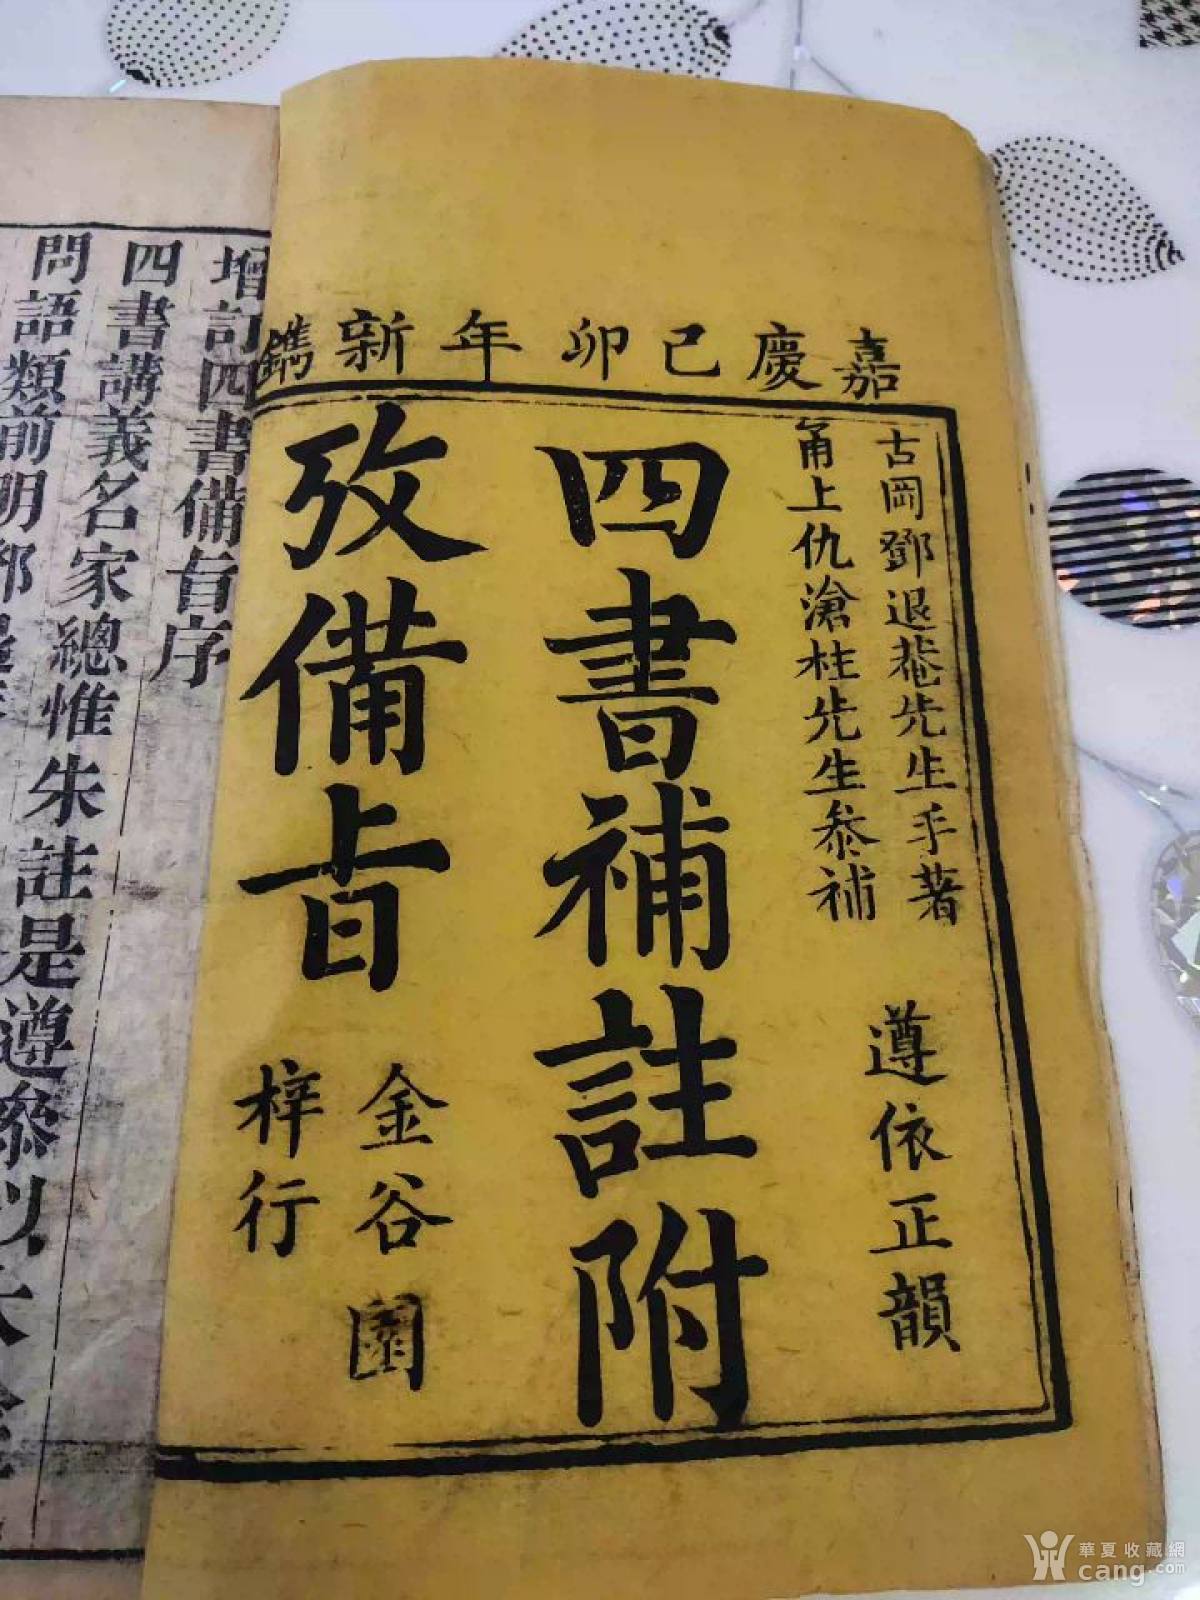 嘉慶己卯年新鐫
古岡鄧退菴先生手著
甬上仇滄柱先生參補
遵依正韻
四書補註附
攷備旨
金谷園
梓行
增訂四書備旨序
四書講義名家總惟朱註是遵叅以大全
問語類前明鄧
華夏收藏網
cang.com